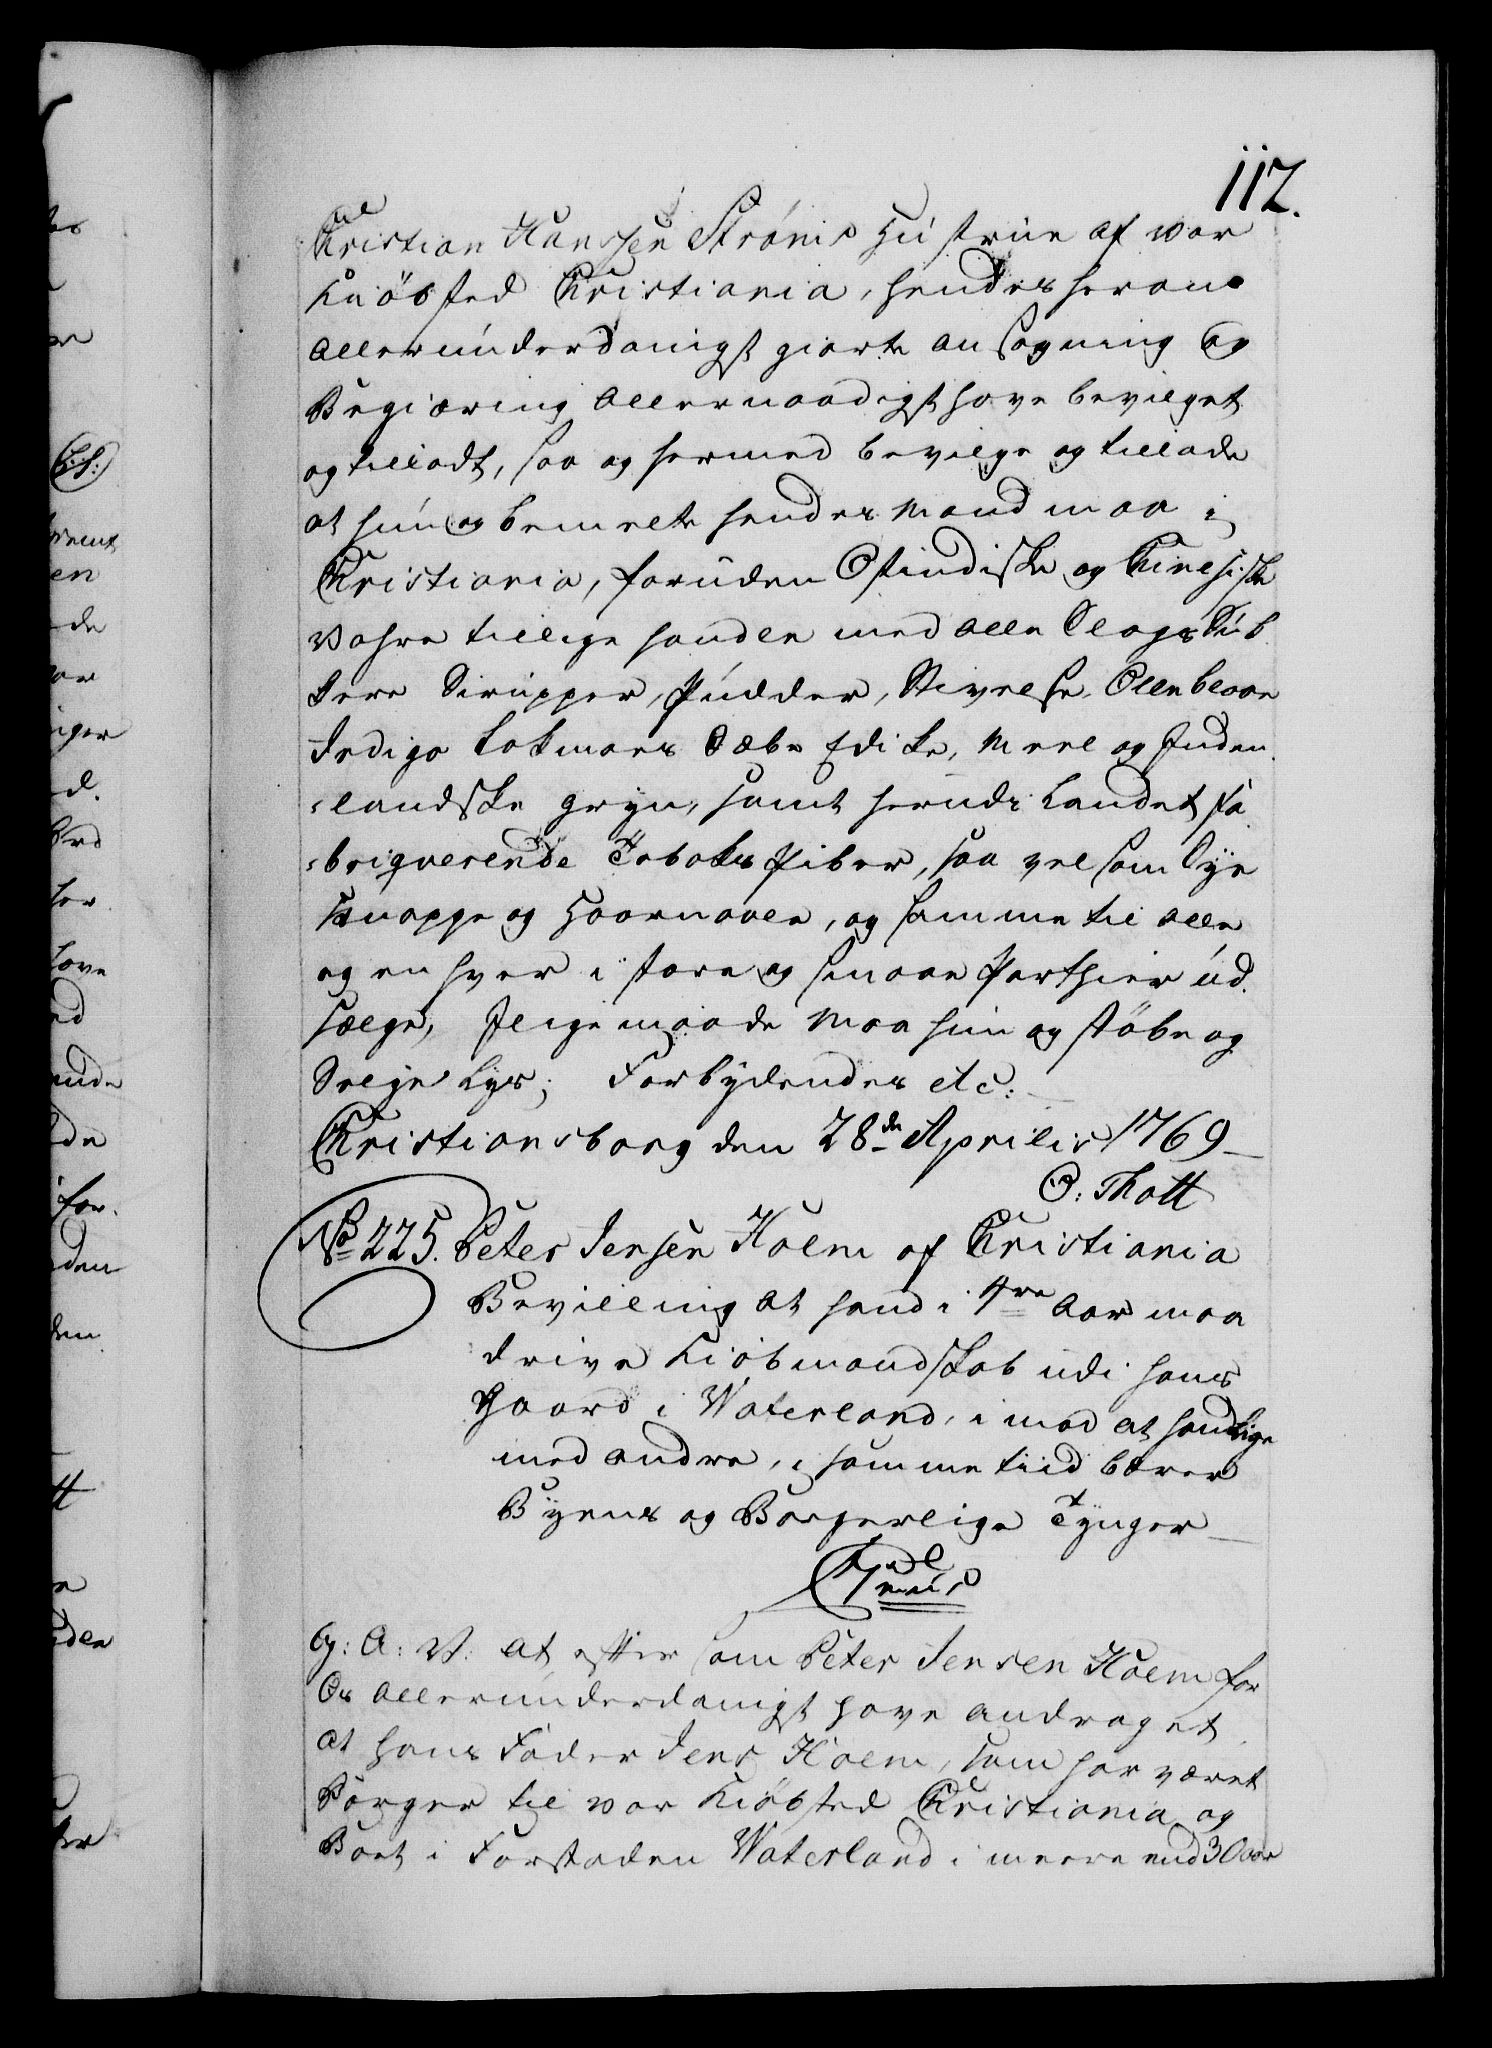 112.
Christian Hanssen Strøms Hústrúe af vor
Kiöbsted Christiania, hendes herom
allerúnderdanigst giorte ansögning og
Begiæring allernaadigst have bevilget
og tilladt, saa og hermed bevilge og tillade
at hún og bemelte hendes Mand maa i
Christiania, foruden Ostindiske og Chinesiske
Vahre tillige handle med alle Slags Súk
kere Sirupper, Púdder, Stivelse, Olleblaae
Indigo Lakmoes Sæbe Edike, Meel og Inden
-landske gryn, samt herudi Landet fa
-briqverende Tobaks Piber, saa vel som Sye
Knappe og Haarnaale, og samme til alle
og enhver i store og smaae Parthier úd
sælge, Jligemaade maa hún og støbe og
Selje Lys; Forbydendes etc:
Christiansborg den 28de Aprilis 1769
O: Thott
No 225. Peter Jensen Holm af Christiania
Bevilling at hand i 4re Aar maa
drive Kiöbmandskab udi hans
Gaard i Waterland, imod at hand lige
med andre, i samme tiid bærer
Byens og Borgerlige Tynger
G: A: V: at efftersom Peter Jensen Holm for
Os allerúnderdanigst have andraget
at hans Fader Jens Holm, som har været
Borger til vor Kiöbsted Christiania og
Boet i Forstaden Waterland i meere end 30 aar